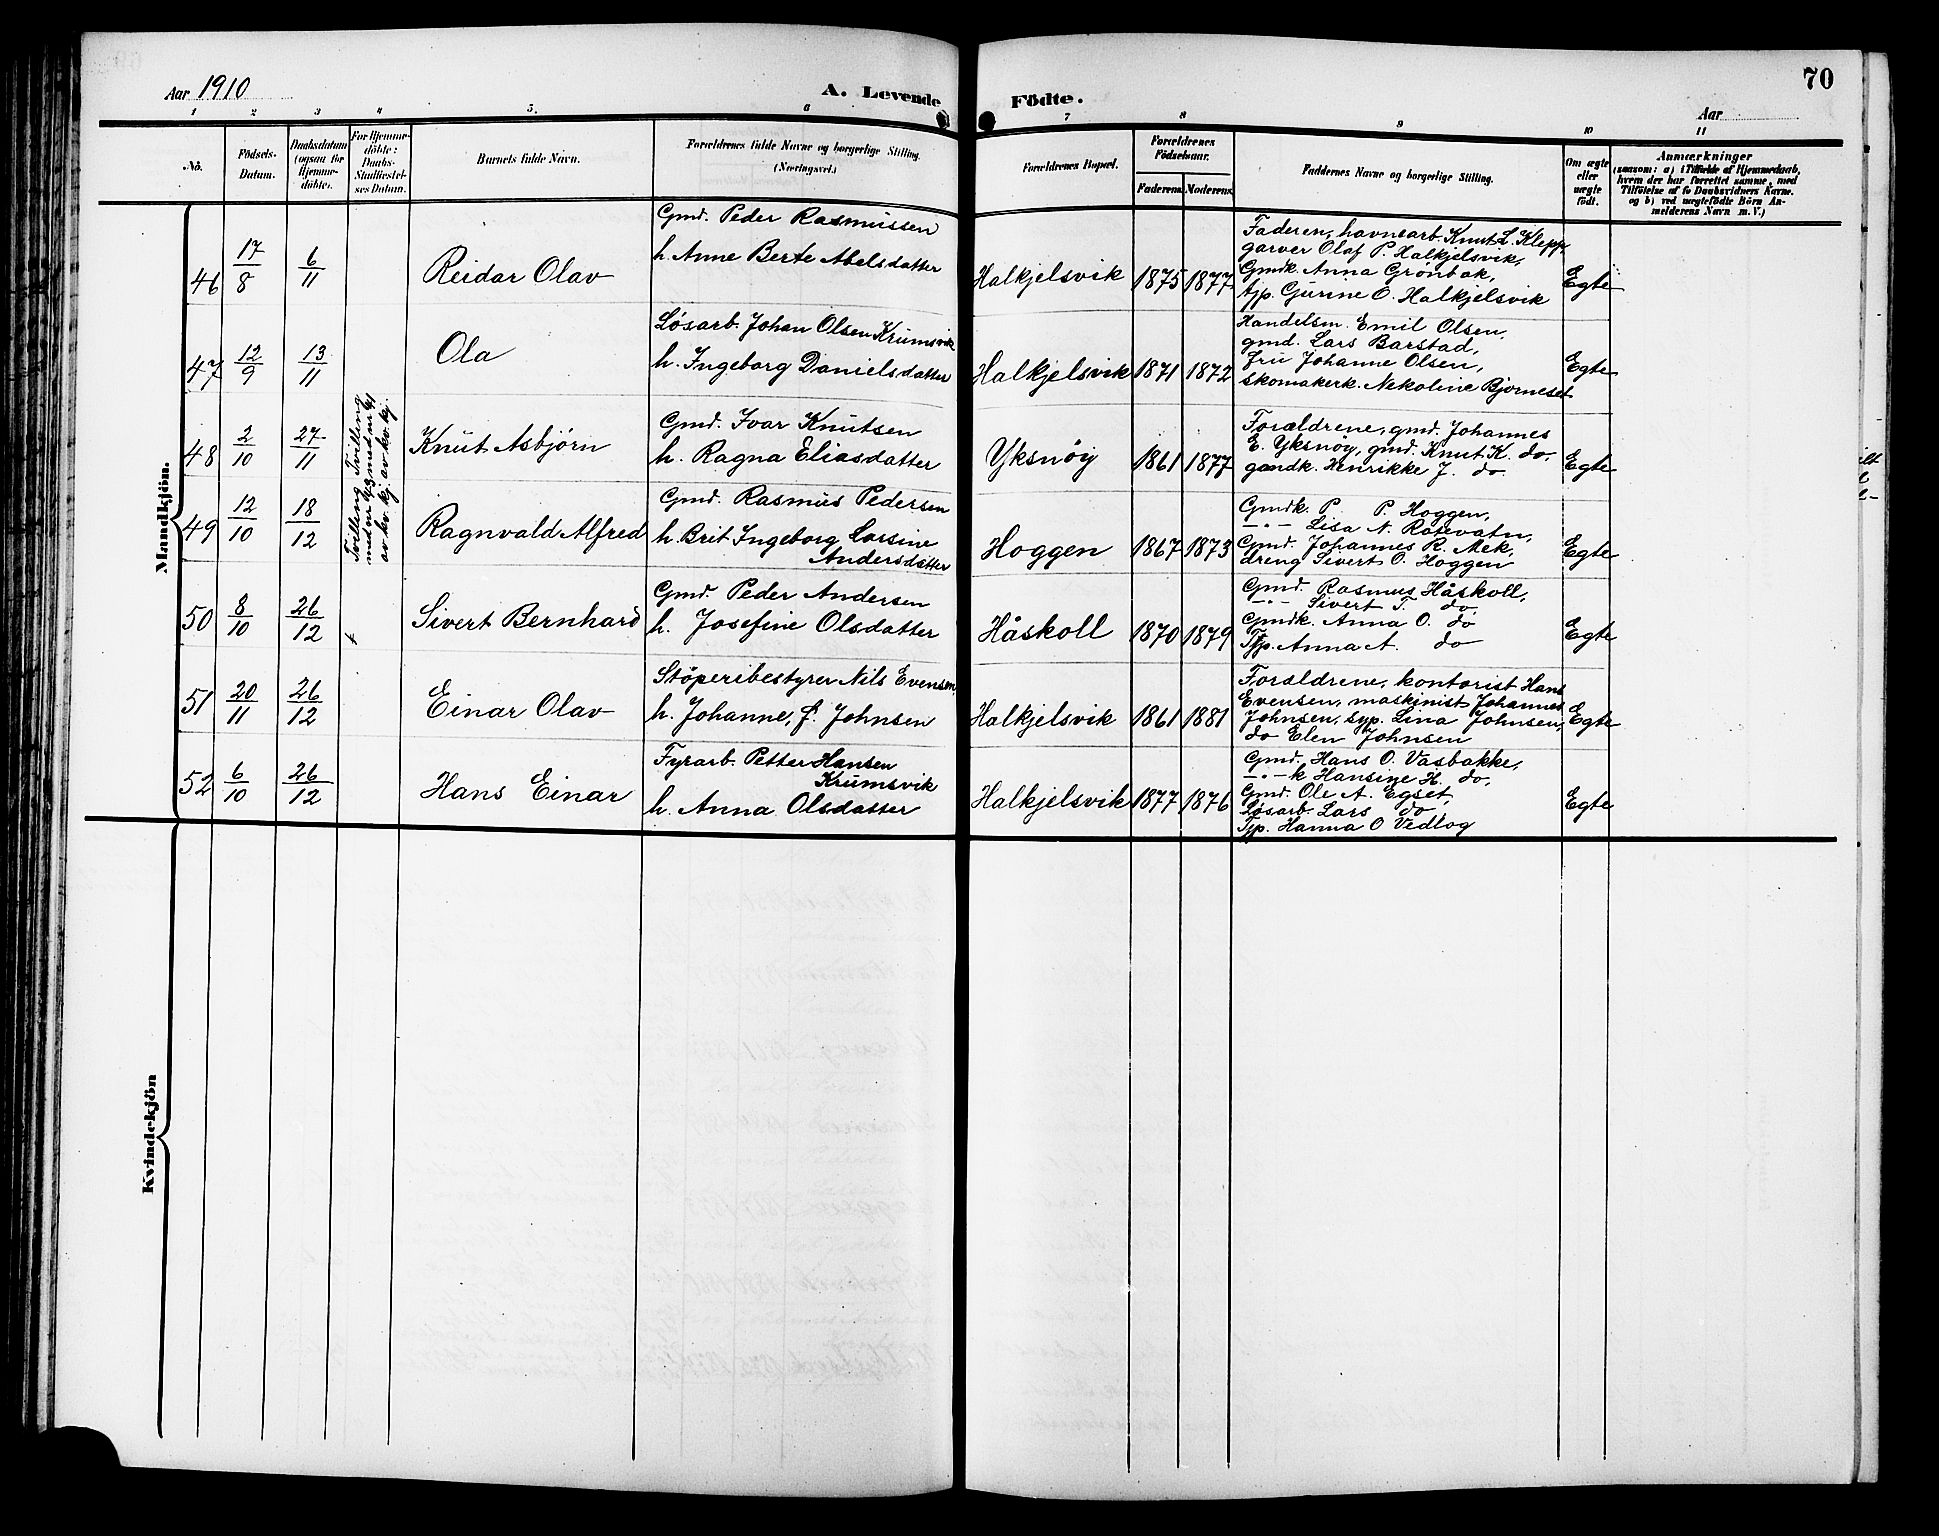 Aar 1910
A. Levende
Födte.
70
Aar
1 2 3 4 5. 6 7 8 9 10 11
No.
Födsels-
Datum.
Daabsdatum
(ogsaa for
Hjemme-
döbte).
For Hjemme-
döbte:
Daabs-
Stadfæstel-
ses Datum.
Barnets fulde Navn.
Forældrenes fulde Navne og borgerlige Stilling.
(Næringsvei.)
Forældrenes Bopæl.
Forældrenes
Födselsaar.
Faderens. Moderens.
Faddernes Navne og borgerlige Stilling.
Om ægte
eller
uægte
födt.
Anmærkninger
(saasom: a) i Tilfælde af Hjemmedaab,
hvem der har forrettet samme, med
Tilföielse af to Daabsvidners Navne,
og b) ved uægtefödte Börn An-
melderens Navn m. V.)
Mandkjön.
46 17/8 6/11 Reidar Olav
Gmd. Peder Rasmussen
h. Anne Berte Abelsdatter
Halkjelsvik 1875 1877
Faderen, havnearb. Knut L. Klepp,
garver Olaf P. Halkjelsvik,
Gmdk. Anna Grönbak,
tjp. Gurine O. Halkjelsvik
Egte
47 12/9 13/11 Ola
Løsarb. Johan Olsen Krumsvik
h. Ingeborg Danielsdatter
Halkjelsvik 1871 1872
Handelsm. Emil Olsen,
gmd. Lars Barstad,
fru Johanne Olsen,
skomakerk. Nekoline Bjorneset
Egte
48 2/10 27/11 Knut Asbjørn
Tvilling
Gmd. Ivar Knutsen
h. Ragna Eliasdatter
Yksnöy 1861 1877
Forældrene, gmd. Johannes
E. Yksnöy, gmd. Knut K. do.
gmdk. Henrikke J. do
Egte
49 12/10 18/12 Ragnvald Alfred
Tvilling
av kv. kj.
Gmd. Rasmus Pedersen
h. Brit Ingeborg Larsine
Andersdatter
Hoggen 1867 1873
Gmdk. P. P. Hoggen,
—"— Lisa N. Rotevatn,
Gmd. Johannes R. Mek,
dreng Sivert O. Hoggen
Egte
50 8/10 26/12 Sivert Bernhard
Gmd. Peder Andersen
h. Josefine Olsdatter
Håskoll 1870 1879
Gmd. Rasmus Håskoll,
—"— Sivert T. do.
Gmdk. Anna O. do
Tjp. Anna A. do
Egte
51 20/11 26/12 Einar Olav
Stöperibestyrer Nils Evensen,
h. Johanne, f. Johnsen
Halkjelsvik 1861 1881
Forældrene, kontorist Hans
Evensen, maskinist Johannes
Johnsen, syp. Lina Johnsen,
do Elen Johnsen
Egte
52 6/10 26/12 Hans Einar
Fyrarb. Petter Hansen
Krumsvik
h. Anna Olsdatter
Halkjelsvik 1877 1876
Gmd. Hans O. Vasbakke,
—"— k Hansine H. do,
Gmd. Ole A. Egset,
Løsarb. Lars do,
Tjp. Hanna O Vedlog
Egte
Kvindekjön